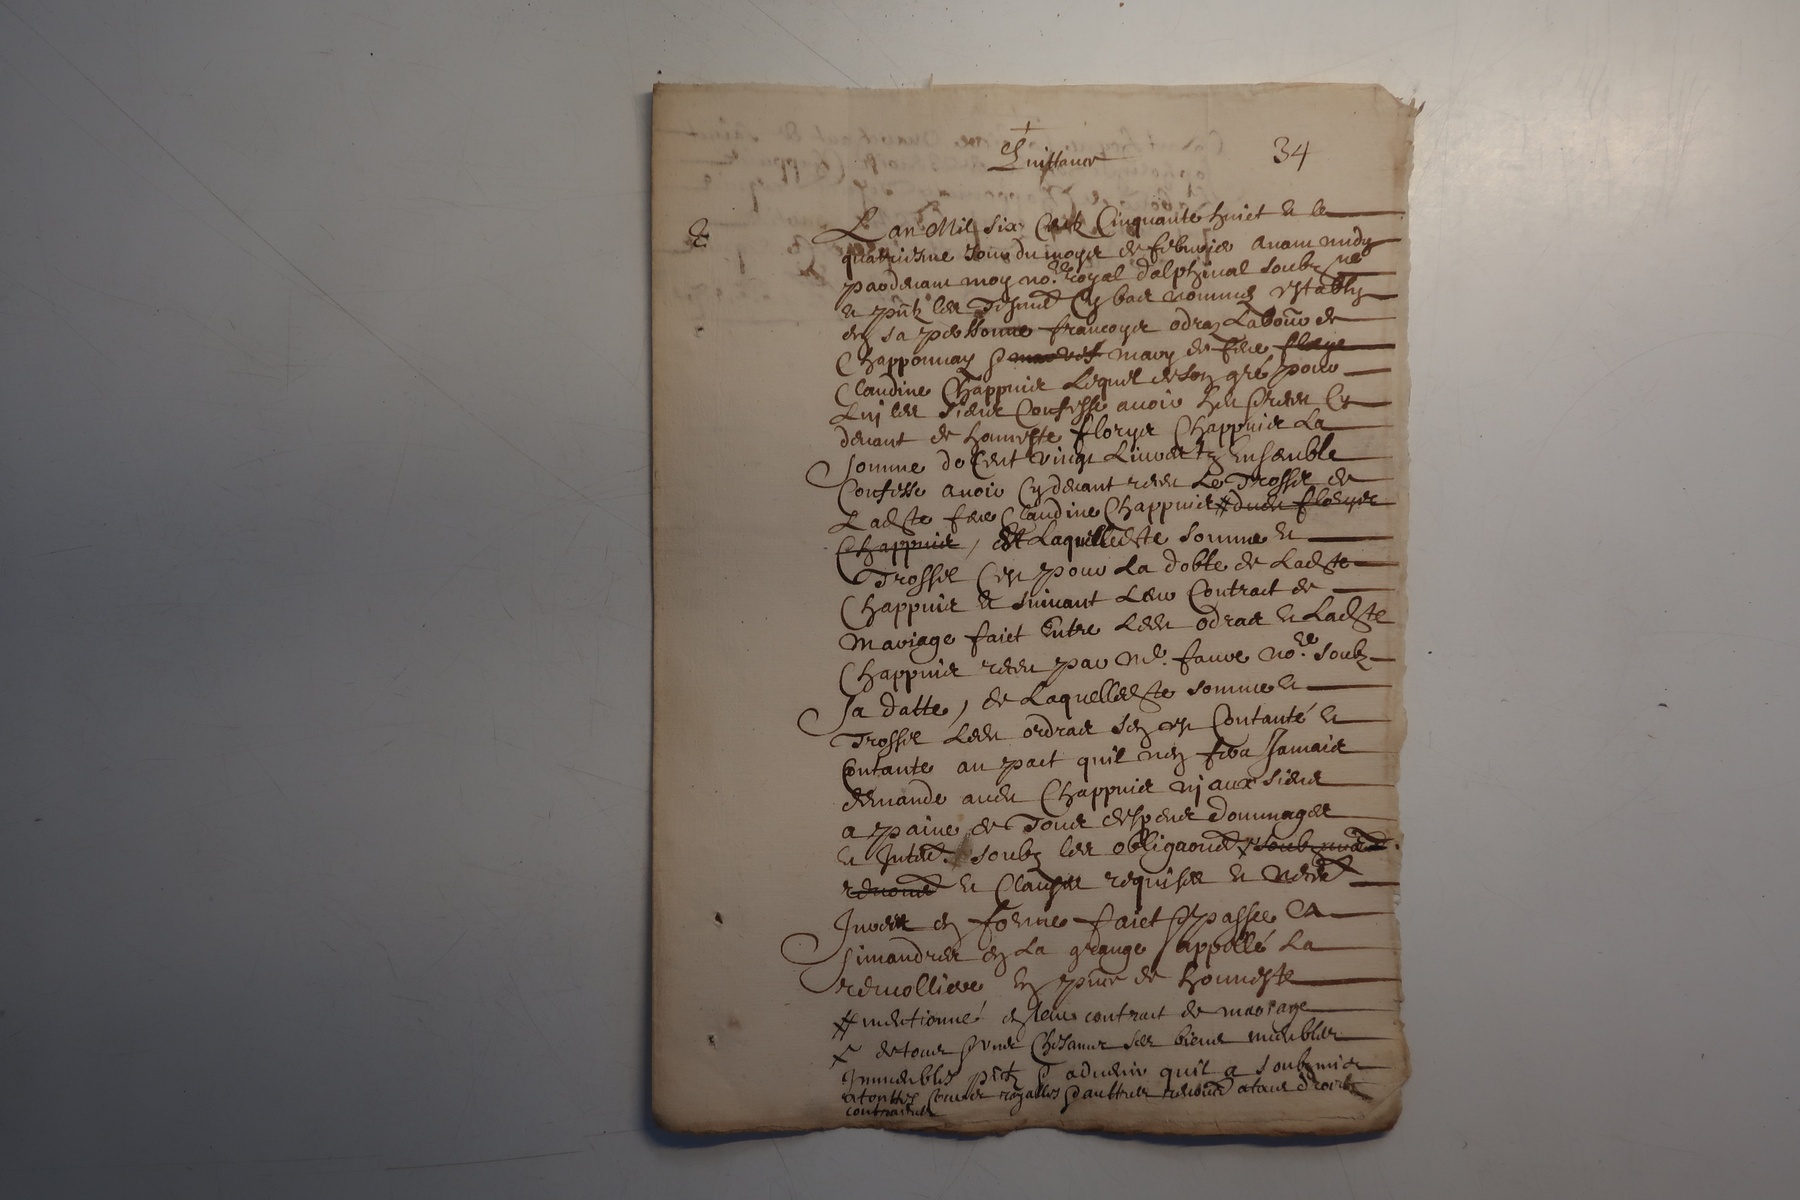 Quittance
34
L an Mil six Centz Cinquante huict & le
quatriesme Jour du moys de febvrier avant midy
pardevant moy no.re royal dalphinal soubz né
& pntz les Tesmo Cy bas nommes estably
en sa personne francoys odraz Labour de
Chapponnay mary de feue
Claudine Chappuis Lequel de son gré pour
Luj les siens Confesse avoir heu receu Cy
devant de honneste florys Chappuis La
somme de Cent vingt Livres tz Ensemble
Confesse avoir Cy devant receu Le Trossel de
Ladte feue Claudine Chappuis # dud florys
Chappuis, & Laquelledte somme &
Trossel Cest pour La dobte de Ladte
Chappuis & suivant Leur Contract de
Mariage faict Entre Led odras & Ladte
Chappuis receu par Me. faure no.re soubz
sa datte, de Laquelledte somme &
Trossel Led odras sen est Contanté &
Contante au pact quil nen fera Jamais
demande aud Chappuis nj aux siens
a paine de Tous despens dommages
& Interestz soubz les obligaons
& Clauses requises &
en forme faict & passé A
simandres en La grange appellé La
remolliere En pnce de honneste
# mentionné en leur contract de mariage
de tous & ungs Chescungs ses biens meubles
Immeubles pntz & advenir quil a soubzmis
a touttes Cours royalles & aultres a tous droictz
contraires